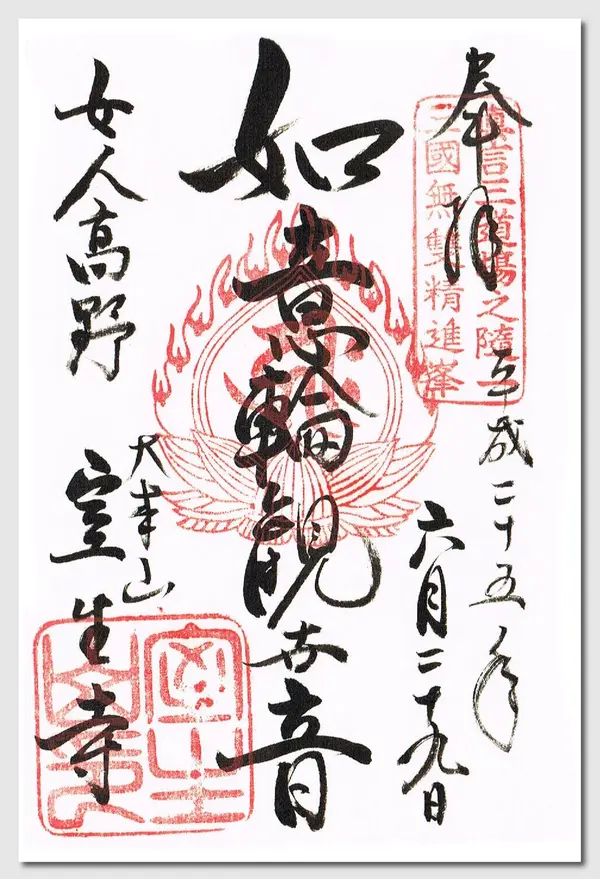 奉拝
眞言三道場之隨一
三國無雙精進峯
平成二十五年
六月二十九日
如意輪観世音
女人高野
大本山
室生寺